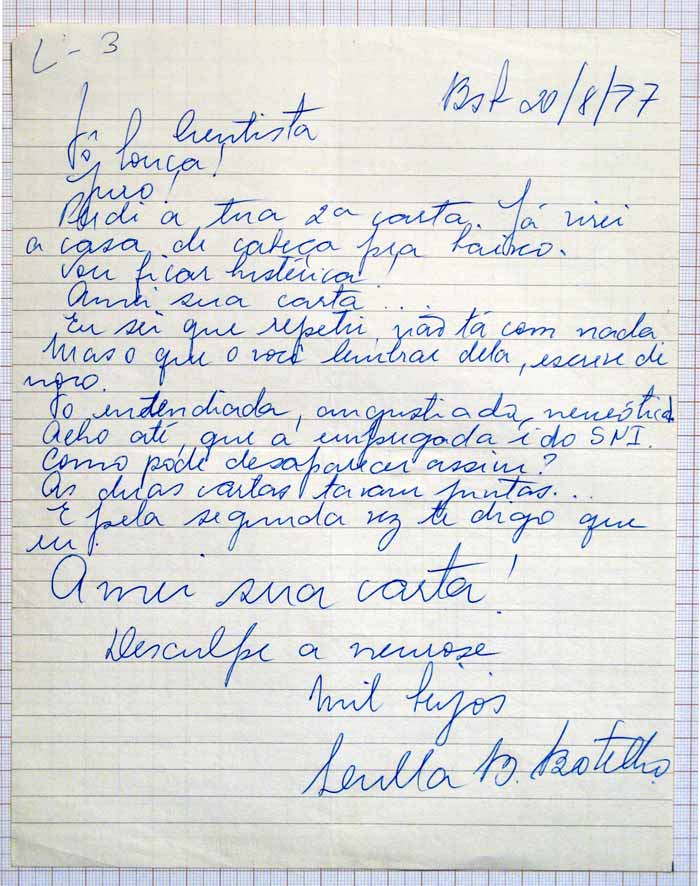 L-3
Bsb 20/8/77
Tô louca!
Juro!
Perdi a tua 2a carta. Já virei
a casa de cabeça pra baixo.
Vou ficar histérica!
Amei sua carta...
Eu sei que repetir, não tá com nada
Mas o que você lembrar dela, escreve de
novo.
Tô entendiada, angustiada, neurótica
Acho até, que a empregada é do SNI.
Como pôde desaparecer assim?
As duas cartas tavam juntas...
E pela segunda vez te digo que
eu:
Amei sua carta!
Desculpe a neurose
Mil beijos
B. Botelho